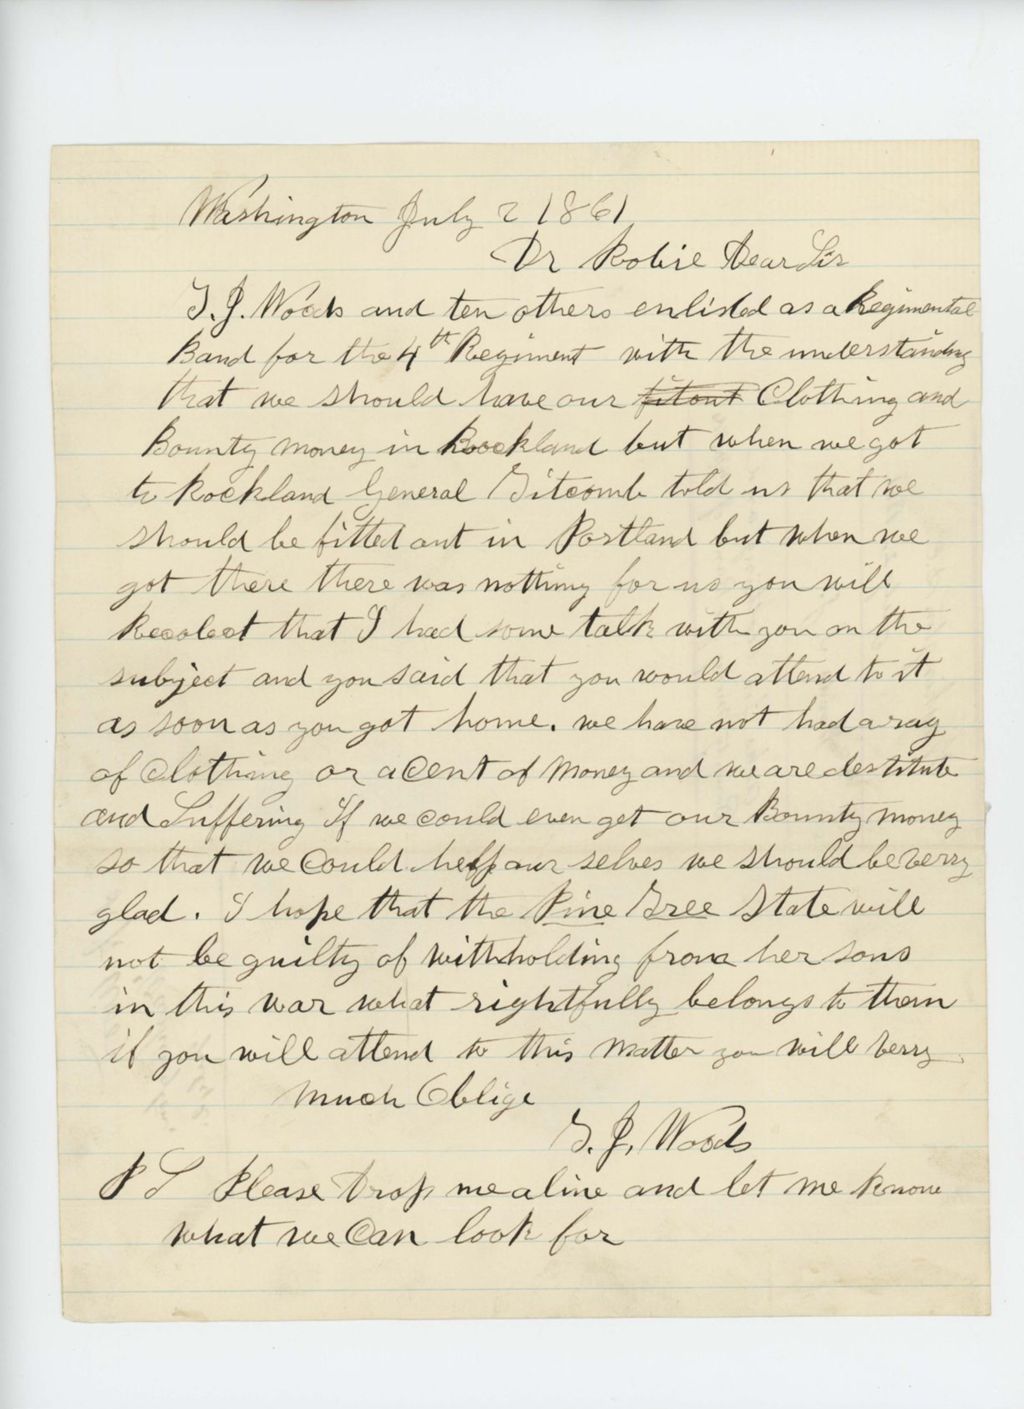 Washington July 2 1861
Dr Robie Dear Sir
T. J. Woods and ten others enlisted as a Regimental
Band for the 4th Regiment with the understanding
that we should have our fitout Clothing and
Bounty money in Rockland but when we got
to Rockland General Titcomb told us that we
should be fitted out in Portland but when we
got there there was nothing for us you will
Recolect that I had some talk with you on the
subject and you said that you would attend to it
as soon as you got home. we have not had a rag
of Clothing or a Cent of Money and we are destitute
and Suffering If we could even get our Bounty money
so that we Could help our selves we should be verry
glad. I hope that the Pine Tree State will
not be guilty of withholding from her sons
in this war what rightfully belongs to them
if you will attend to this Matter you will verry
much Oblige
T. J. Woods
P S Please Drop me a line and let me know
what we Can look for